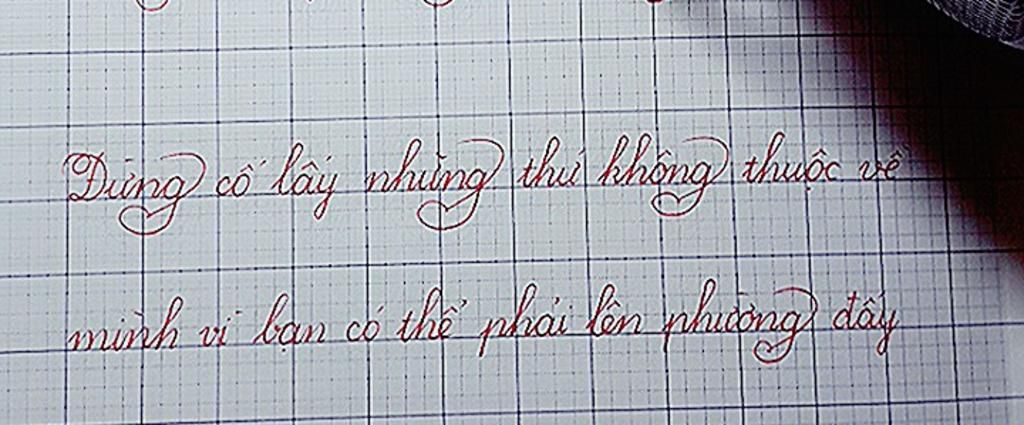 Đừng cố lấy những thứ không thuộc về
mình vì bạn có thể phải lên phường đấy